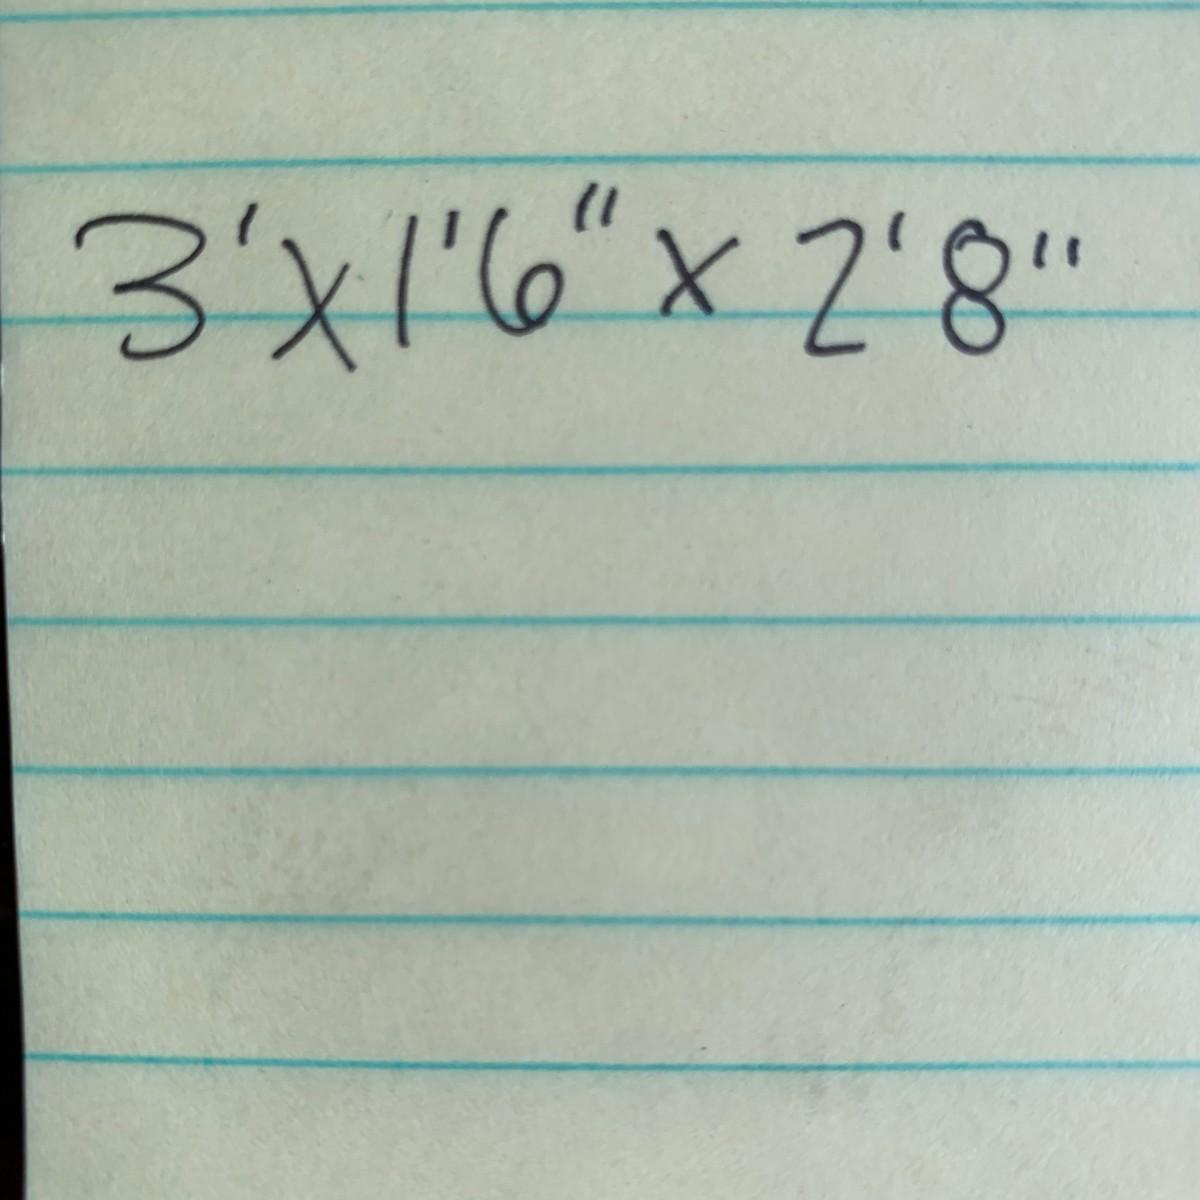 3'x1'6" x 2'8"